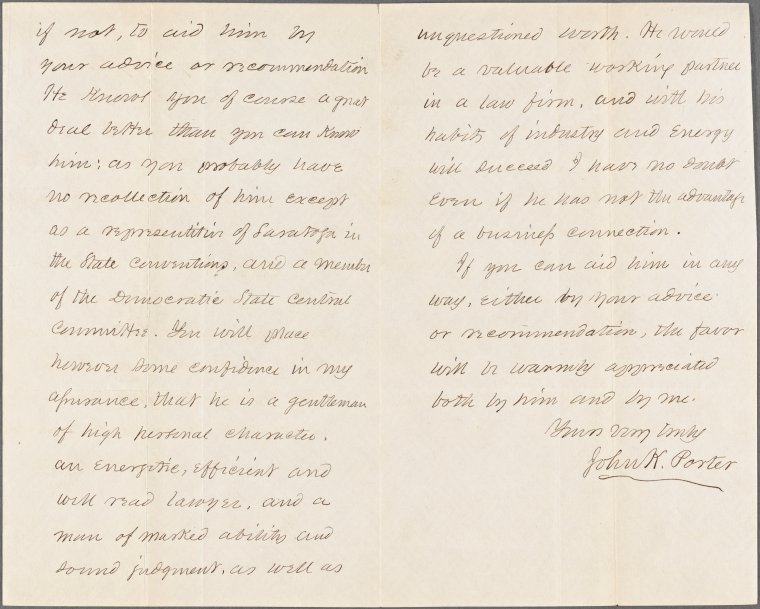 if not, to aid him by
your advice or recommendation
He knows you of course a great
deal better than you can know
him; as you probably have
no recollection of him except
as a representitive of Saratoga in
the State Conventions, and a member
of the Democratic State Central
Committee. You will place
however some confidence in my
assurance, that he is a gentleman
of high personal character.
an energetic, efficient and
well read lawyer, and a
man of marked ability and
sound judgment, as well as
unquestioned worth. He would
be a valuable working partner
in a law firm, and with his
habits of industry and energy
will succeed I have no doubt
even if he has not the advantage
of a business connection.
If you can aid him in any
way, either by your advice
or recommendation, the favor
will be warmly appreciated
both by him and by me.
Yours very truly
John K. Porter